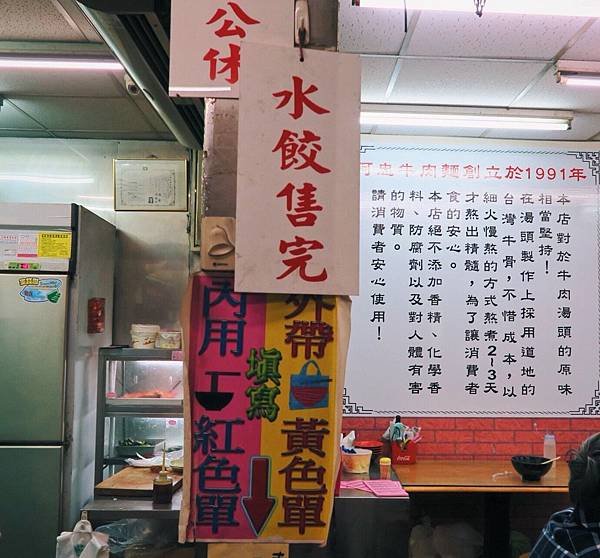 公休
水餃售完
內用
紅色單
填寫
外帶
黃色單
阿忠牛肉麵創立於1991年
本店對於牛肉湯頭的原味
相當堅持！
在湯頭製作上採用道地的
台灣牛骨，不惜成本，以
細火慢熬的方式熬煮2-3天
才熬出精髓，為了讓消費者
食的安心。
本店絕不添加香精、化學香
料、防腐劑以及對人體有害
的物質。
請消費者安心使用！